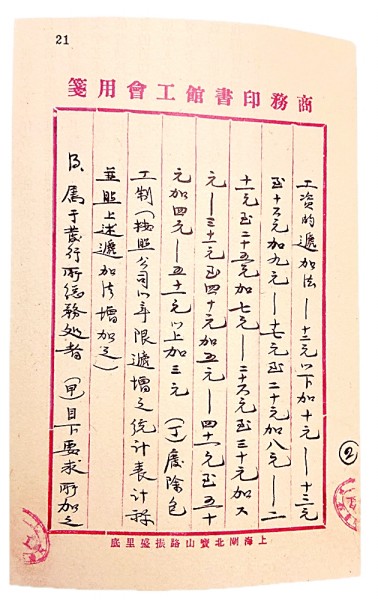 21
商務印書館工會用箋
工资的遞加法——十二元以下加十元——十三元
至十六元加九元——十七元至二十元加八元——二
十一元至二十五元加七元——二十六元至三十元加六
元——三十一元至四十元加五元——四十一元至五十
元加四元——五十一元以上加三元 (丁)廢除包
工制(按照公司以年限遞增之統計表計算
並照上述遞加法增加之)
B. 屬于發行所總務處者 (甲)目下要求所加之
②
上海閘北寶山路振盛里底